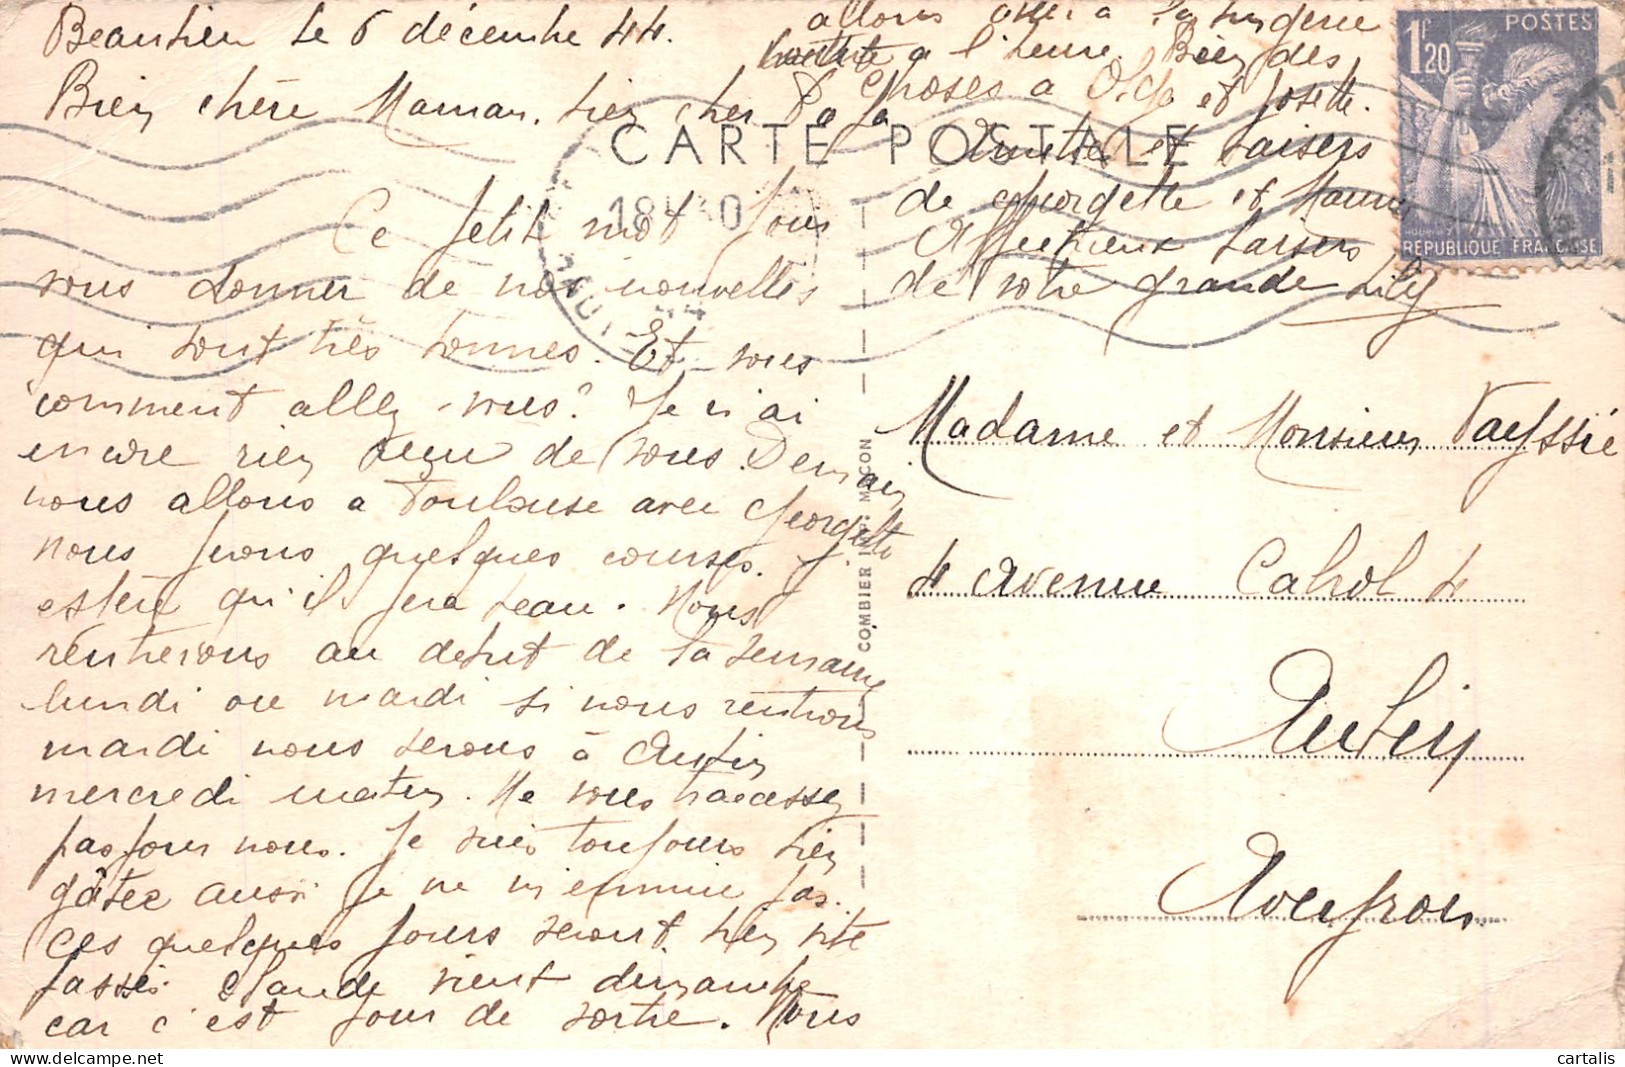 Beaulieu le 6 décembre 44.
Bien chère Maman, bien cher Papa
CARTE POSTALE
Ce petit mot pour
vous donner de nos nouvelles
qui sont très bonnes. Et vous
comment allez-vous? Je n'ai
encore rien reçu de vous. Demain
nous allons a Toulouse avec Georgette
nous ferons quelques courses. J'
espère qu'il fera beau. Nous
rentrerons au debut de la semaine
lundi ou mardi si nous rentrons
mardi nous serons à Aubin
mercredi matin. Ne vous tracassez
pas pour nous. Je suis toujours bien
gâtée aussi je ne m'ennuie pas.
ces quelques jours seront bien vite
passés. Claude vient dimanche
car c'est jour de sortie. Nous
allons a la lingerie
a l'heure. Bien des
choses a Olga et Josette.
et baisers
de Georgette et
Affectueux baisers
de votre grande Lily
POSTES
1F20
RÉPUBLIQUE FRANÇAISE
18H
44
COMBIER IMP. MACON
Madame et Monsieur Vayssié
4 Avenue Cabrol 4
Aubin
Aveyron
cartalis